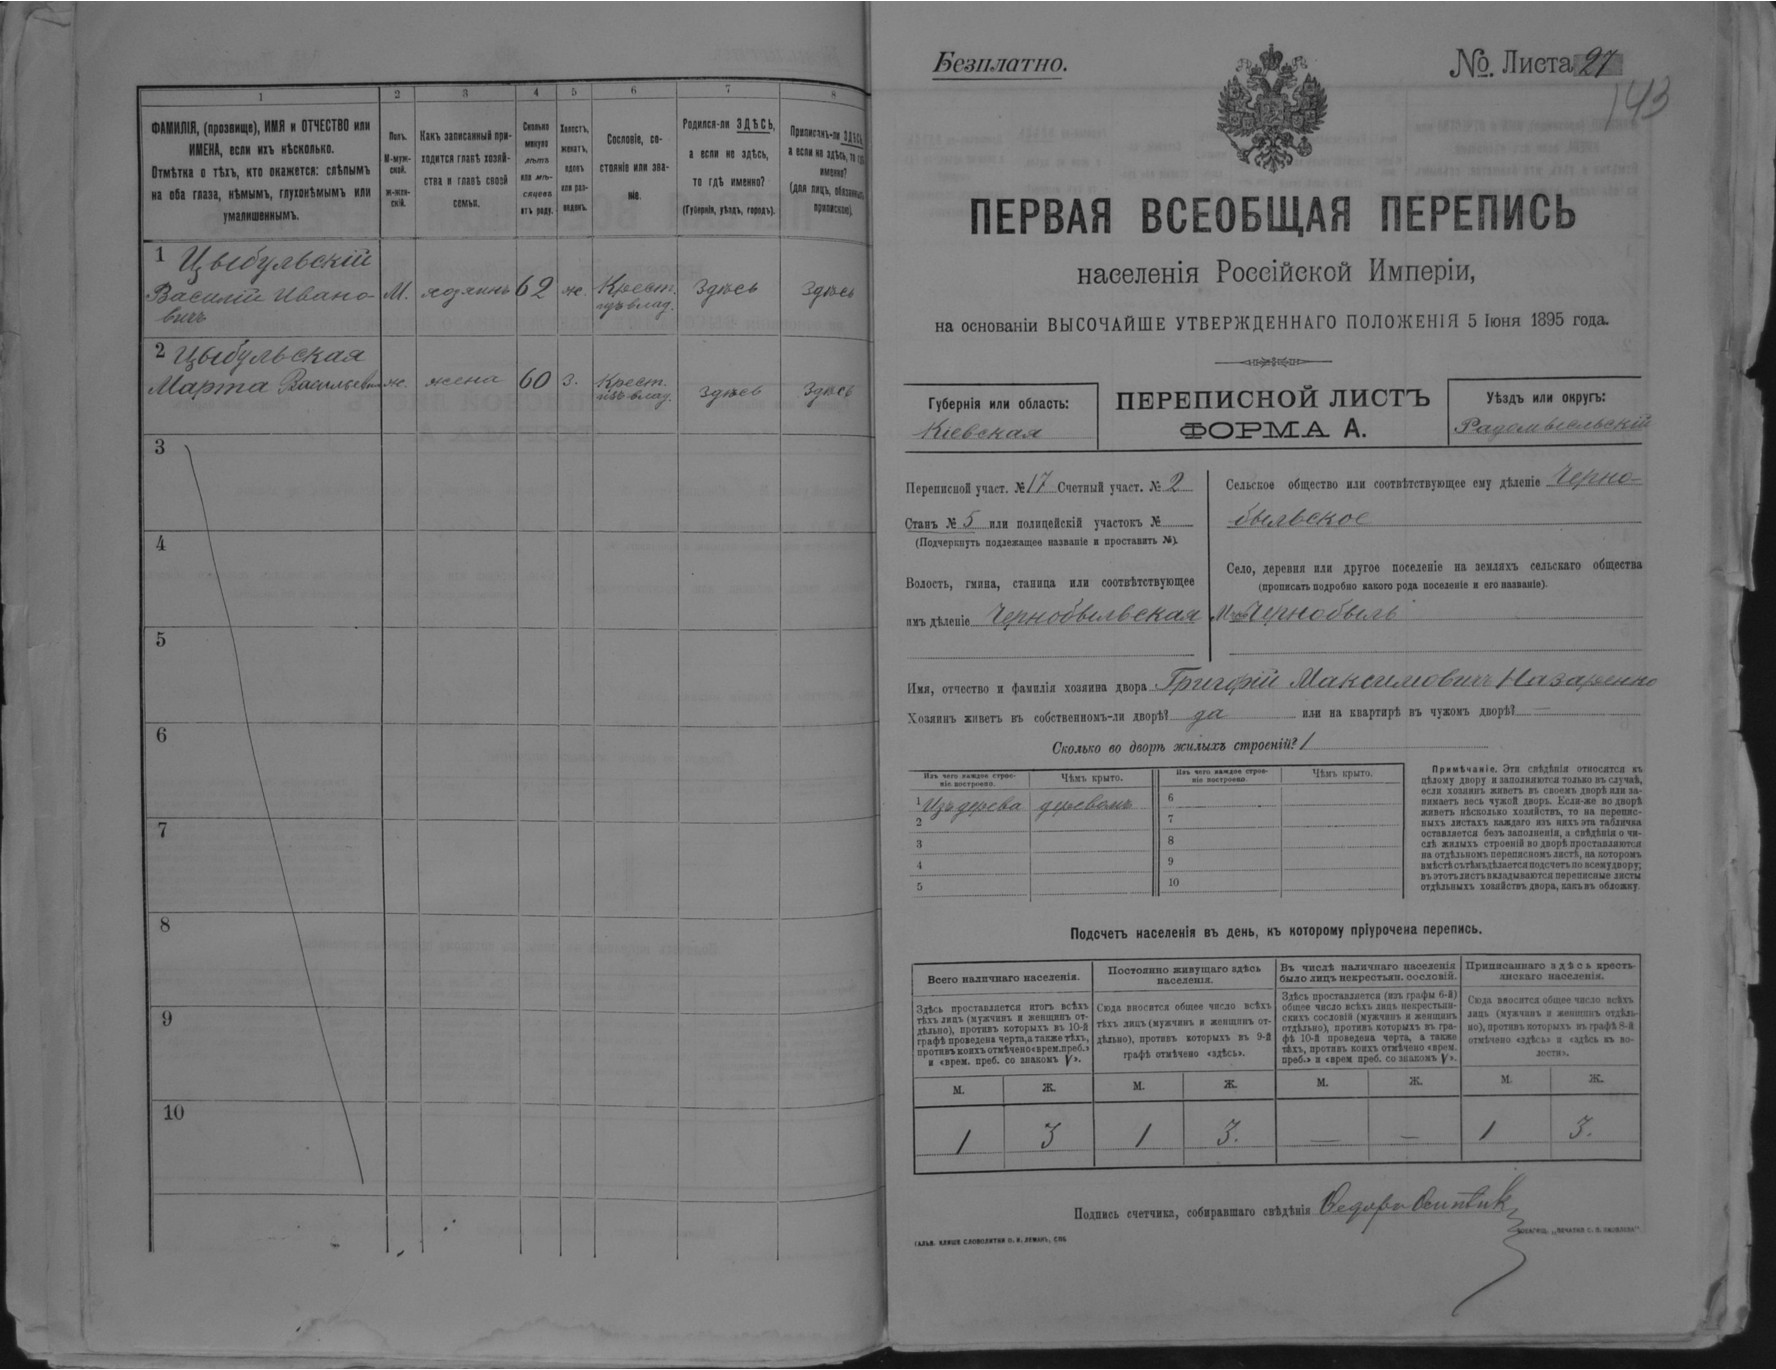 1 2 3 4 5 6 7 8
ФАМИЛІЯ, (прозвище), ИМЯ и ОТЧЕСТВО или
ИМЕНА, если ихъ нѣсколько.
Отмѣтка о тѣхъ, кто окажется: слѣпымъ
на оба глаза, нѣмымъ, глухонѣмымъ или
умалишеннымъ.
Полъ.
М-муж-
ской.
ж-жен-
скій.
Какъ записанный при-
ходится главѣ хозяй-
ства и главѣ своей
семьи.
Сколько
минуло
лѣтъ
или мѣ-
сяцевъ
отъ роду.
Холостъ,
женатъ,
вдовъ
или раз-
веденъ.
Сословіе, со-
стояніе или зва-
ніе.
Родился-ли ЗДѢСЬ,
а если не здѣсь,
то гдѣ именно?
(Губернія, уѣздъ, городъ).
Приписанъ-ли ЗДѢСЬ,
а если не здѣсь, то гдѣ
именно?
(для лицъ, обязанныхъ
припискою).
1 Цыбульскій
Василій Ивано-
вичъ
М. хозяинъ 62 ж. Крест.
изъ влад.
Здѣсь Здѣсь
2 Цыбульская
Марта Васильевна
ж. жена 60 з. Крест.
изъ влад.
Здѣсь Здѣсь
3
4
5
6
7
8
9
10
Безплатно.
№. Листа 27
143
ПЕРВАЯ ВСЕОБЩАЯ ПЕРЕПИСЬ
населенія Россійской Имперіи,
на основаніи ВЫСОЧАЙШЕ УТВЕРЖДЕННАГО ПОЛОЖЕНІЯ 5 Іюня 1895 года.
Губернія или область:
Кіевская
ПЕРЕПИСНОЙ ЛИСТЪ
ФОРМА А.
Уѣздъ или округъ:
Радомысльскій
Переписной участ. № 17 Счетный участ. № 2
Станъ № 5 или полицейскій участокъ №
(Подчеркнуть подлежащее названіе и проставить №).
Волость, гмина, станица или соотвѣтствующее
имъ дѣленіе Чернобыльская
Сельское общество или соотвѣтствующее ему дѣленіе Черно-
быльское
Село, деревня или другое поселеніе на земляхъ сельскаго общества
(прописать подробно какого рода поселеніе и его названіе).
Чернобыль
Имя, отчество и фамилія хозяина двора Григорій Максимовичъ Назаренко
Хозяинъ живетъ въ собственномъ-ли дворѣ? да или на квартирѣ въ чужомъ дворѣ? —
Сколько во дворѣ жилыхъ строеній? 1
Изъ чего каждое строе-
ніе построено.
Чѣмъ крыто.
Изъ чего каждое строе-
ніе построено.
Чѣмъ крыто.
1 Изъ дерева деревомъ
2
3
4
5
6
7
8
9
10
Примѣчаніе. Эти свѣдѣнія относятся къ
цѣлому двору и заполняются только въ случаѣ,
если хозяинъ живетъ въ своемъ дворѣ или за-
нимаетъ весь чужой дворъ. Если-же во дворѣ
живетъ нѣсколько хозяйствъ, то на перепис-
ныхъ листахъ каждаго изъ нихъ эта табличка
оставляется безъ заполненія, а свѣдѣнія о чи-
слѣ жилыхъ строеній во дворѣ проставляются
на отдѣльномъ переписномъ листѣ, на которомъ
вмѣстѣ съ тѣмъ дѣлается подсчетъ по всему двору;
въ этотъ листъ вкладываются переписные листы
отдѣльныхъ хозяйствъ двора, какъ въ обложку.
Подсчетъ населенія въ день, къ которому пріурочена перепись.
Всего наличнаго населенія.
Здѣсь проставляется итогъ всѣхъ
тѣхъ лицъ (мужчинъ и женщинъ от-
дѣльно), противъ которыхъ въ 10-й
графѣ проведена черта, а также тѣхъ,
противъ коихъ отмѣчено «врем. преб.»
и «врем. преб. со знакомъ V».
Постоянно живущаго здѣсь
населенія.
Сюда вносится общее число всѣхъ
тѣхъ лицъ (мужчинъ и женщинъ от-
дѣльно), противъ которыхъ въ 9-й
графѣ отмѣчено «здѣсь».
Въ числѣ наличнаго населенія
было лицъ некрестьян. сословій.
Здѣсь проставляется (изъ графы 6-й)
общее число всѣхъ лицъ некрестьян-
скихъ сословій (мужчинъ и женщинъ
отдѣльно), противъ которыхъ въ гра-
фѣ 10-й проведена черта, а также
тѣхъ, противъ коихъ отмѣчено «врем.
преб.» и «врем преб. со знакомъ V».
Приписаннаго здѣсь кресть-
янскаго населенія.
Сюда вносится общее число всѣхъ
лицъ (мужчинъ и женщинъ отдѣль-
но), противъ которыхъ въ графѣ 8-й
отмѣчено «здѣсь» и «здѣсь въ во-
лости».
М. Ж. М. Ж. М. Ж. М. Ж.
1 3 1 3. — — 1 3.
Подпись счетчика, собиравшаго свѣдѣнія